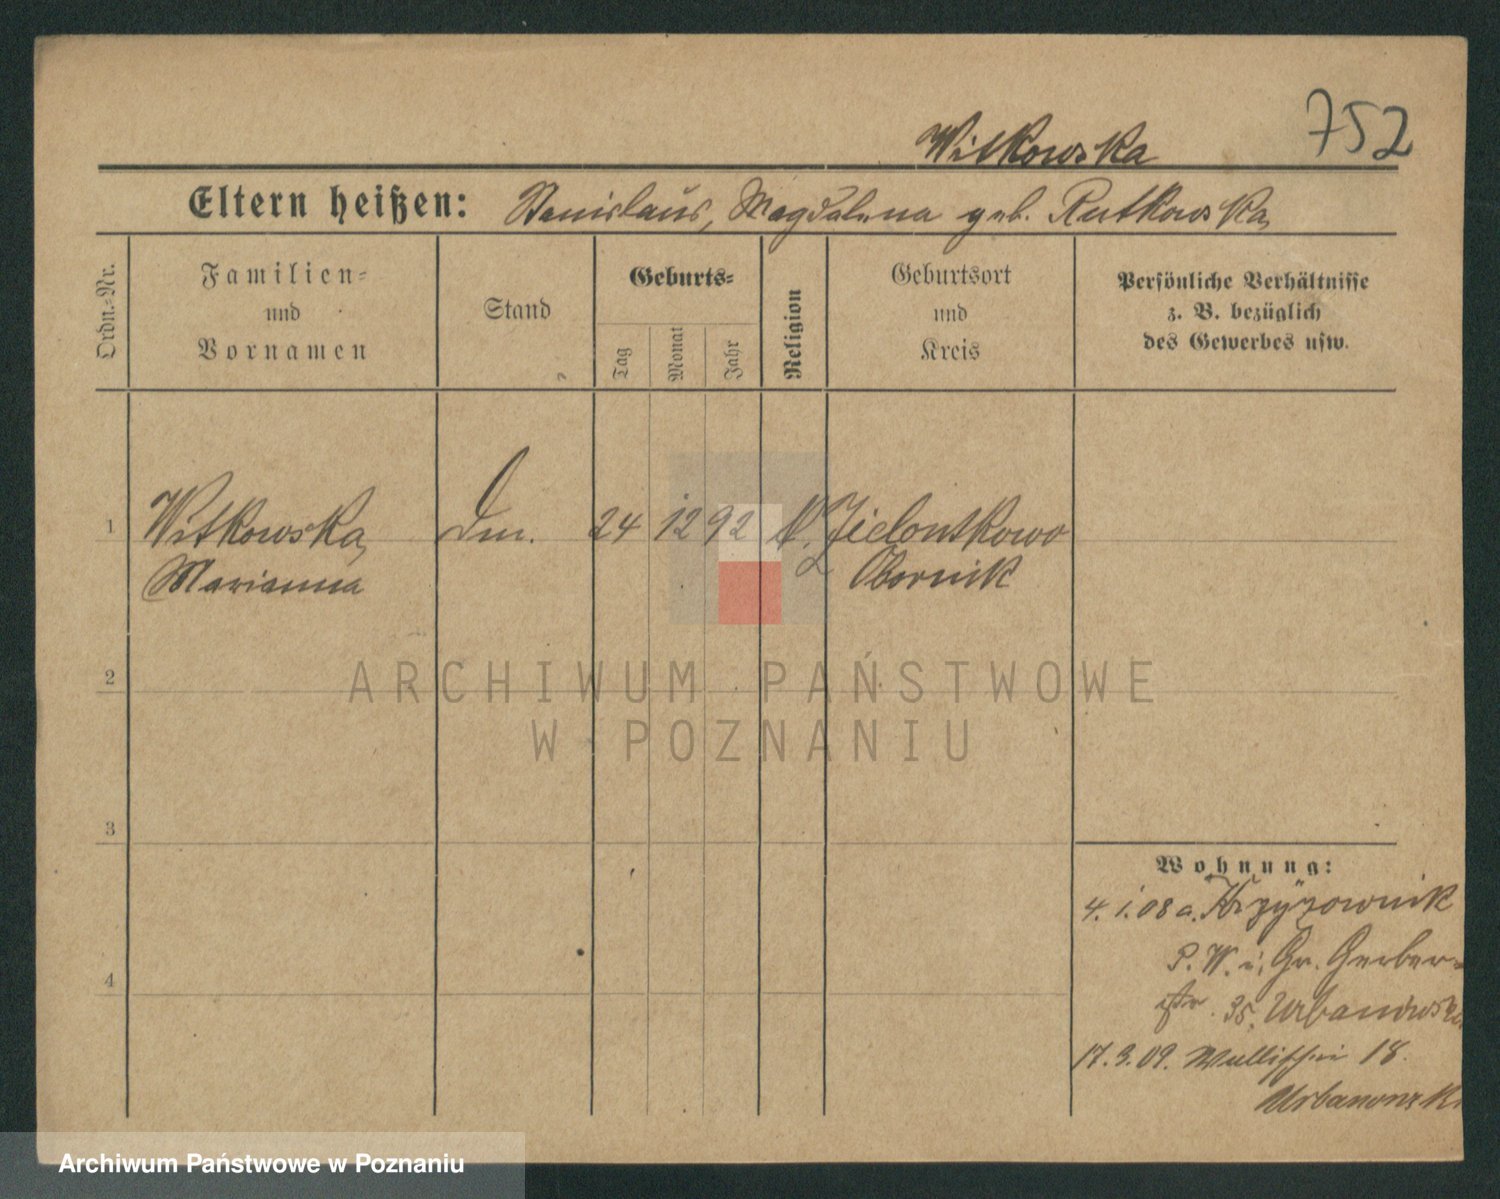 752
Witkowska
Eltern heißen: Stanislaus, Magdalena geb. Rutkowska
Ordn.-Nr.
Familien-
und
Vornamen
Stand
Geburts-
Tag
Monat
Jahr
Religion
Geburtsort
und
Kreis
Persönliche Verhältnisse
z. B. bezüglich
des Gewerbes usw.
1 Witkowska, Dm. 24 12 92 Zielontkowo
Marianna Obornik
2
3
4
ARCHIWUM PAŃSTWOWE
W POZNANIU
Wohnung:
4. 1. 08 a. Krzyżownik
P. W. i, Gr. Gerber-
str. 35, Urbanowska
17. 3. 09. Wallischei 18.
Urbanowsk
Archiwum Państwowe w Poznaniu